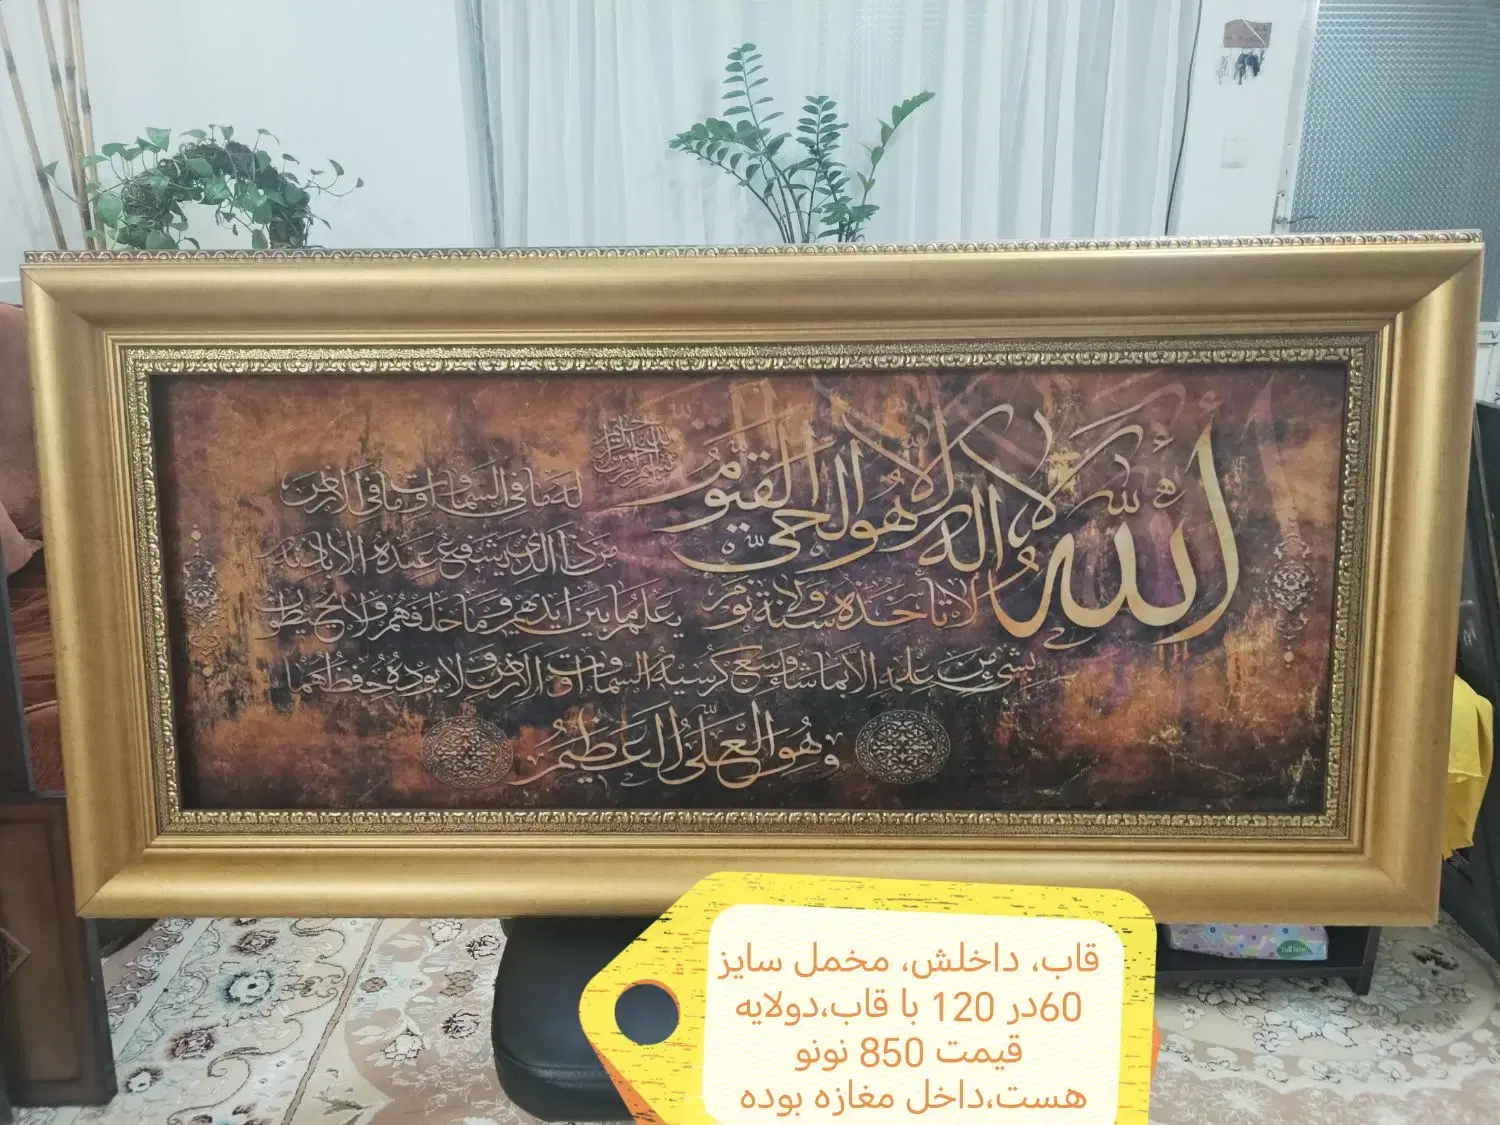 الله لا اله الا هو الحي القيوم
له ما في السماوات وما في الارض
لا تأخذه سنة ولا نوم
من ذا الذي يشفع عنده الا باذنه
يعلم ما بين ايديهم وما خلفهم ولا يحيطون
بشيء من علمه الا بما شاء وسع كرسيه السماوات والارض ولا يوده حفظهما
وهو العلي العظيم
قاب، داخلش، مخمل سایز
60در 120 با قاب،دولایه
قیمت 850 نونو
هست،داخل مغازه بوده